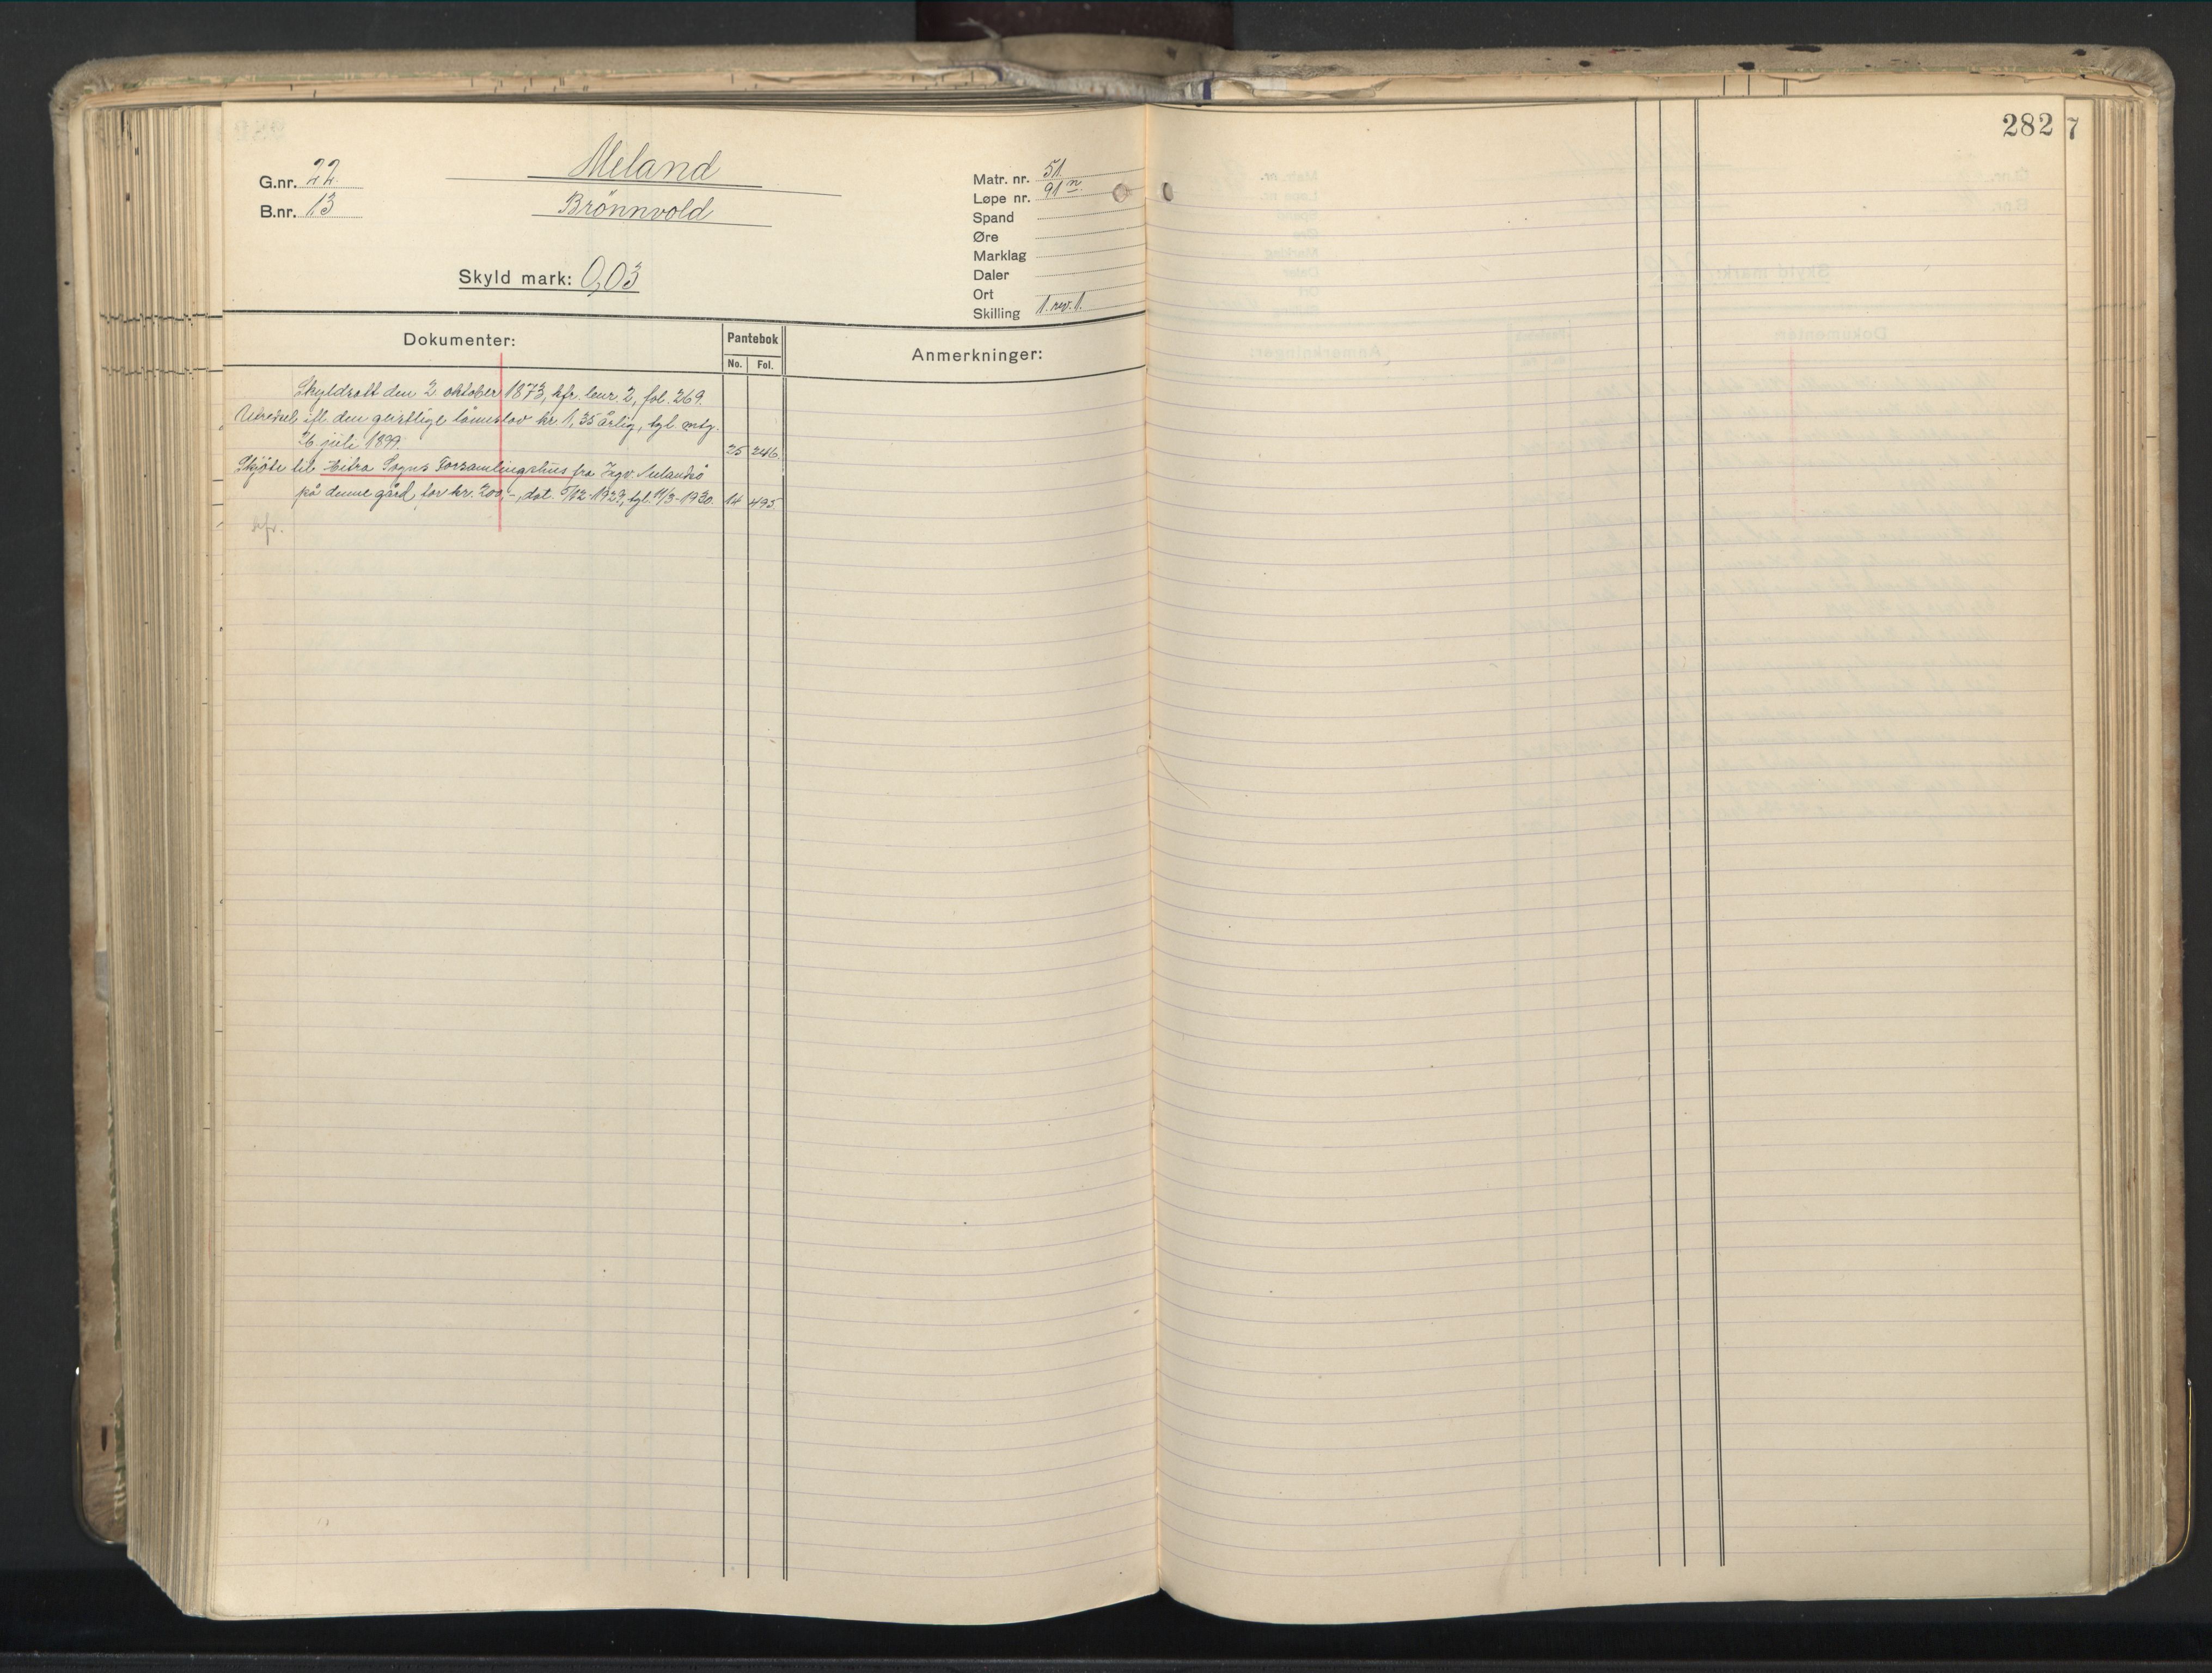 282
7
G.nr. 22.
B.nr. 13
Meland
Brönnvold
Skyld mark: 0,03
Matr. nr. 51.
Løpe nr. 91 n.
Spand
Øre
Marklag
Daler
Ort
Skilling 1. rev. 1.
Dokumenter:
Pantebok
No. Fol.
Anmerkninger:
Skyldsatt den 2 oktober 1873, kfr. 2, fol. 269.
Utredsel ifl. den geistlige kr. 1,35 årlig, tgl. mtg.
26 juli 1899. 25 246.
Skjöte til Hitra Sogns Forsamlingshus fra Ingv.
på denne gård, for kr. 200,-, dat. 5/12-1929, tgl. 11/3-1930. 14 495.
kfr.